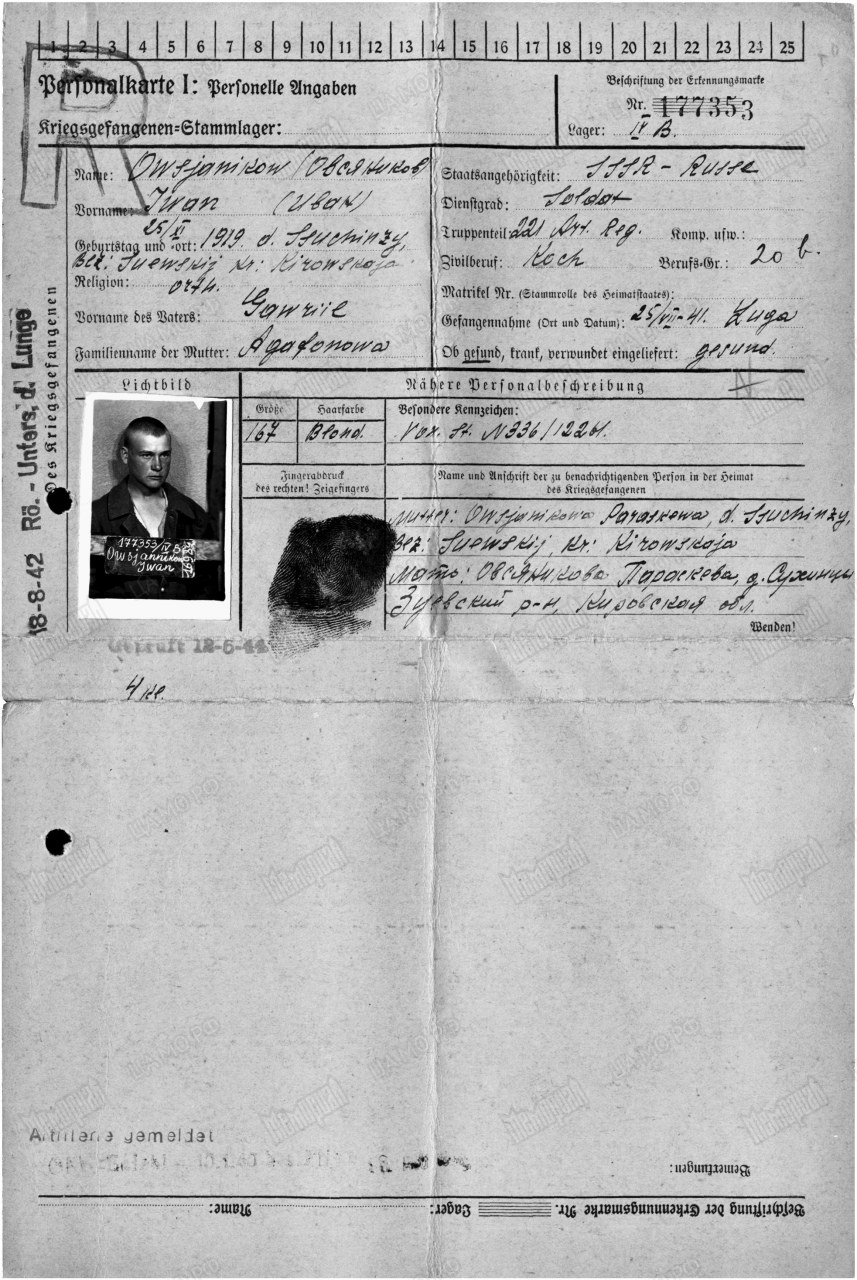 1 2 3 4 5 6 7 8 9 10 11 12 13 14 15 16 17 18 19 20 21 22 23 24 25
R
Personalkarte I: Personelle Angaben
Kriegsgefangenen=Stammlager:
Beschriftung der Erkennungsmarke
Nr. 177353
Lager: IV B.
Name: Owsjanikow (Овсяников)
Vorname: Iwan (Иван)
Geburtstag und =ort: 25/XI 1919. d. Ssuchinzy,
Bez: Suewskij Kr: Kirowskaja
Religion: orth.
Vorname des Vaters: Gawriil
Familienname der Mutter: Agafonowa
Staatsangehörigkeit: SSSR - Russe
Dienstgrad: Soldat
Truppenteil: 221 Art. Reg. Komp. usw.:
Zivilberuf: Koch Berufs-Gr.: 20 b.
Matrikel Nr. (Stammrolle des Heimatstaates):
Gefangennahme (Ort und Datum): 25/VII-41. Luga
Ob gesund, krank, verwundet eingeliefert: gesund.
18-8-42 Rö. - Unters. d. Lunge
Des Kriegsgefangenen
Lichtbild
Nähere Personalbeschreibung
Größe Haarfarbe Besondere Kennzeichen:
167 Blond. St. N336/
Fingerabdruck
des rechten! Zeigefingers
Name und Anschrift der zu benachrichtigenden Person in der Heimat
des Kriegsgefangenen
Mutter: Owsjanikowa Paraskewa, d. Ssuchinzy,
Bez: Suewskij, Kr: Kirowskaja
Мать: Овсяникова Параскева, д. Сухинцы
Зуевский р-н, Кировская обл.
Wenden!
177353/IV B
Owsjannikow
Iwan
Geprüft 12-5-44
4 кл.
Artillerie gemeldet
Bemerkungen:
Beschriftung der Erkennungsmarke Nr. Lager: Name:
ЦАМО РФ